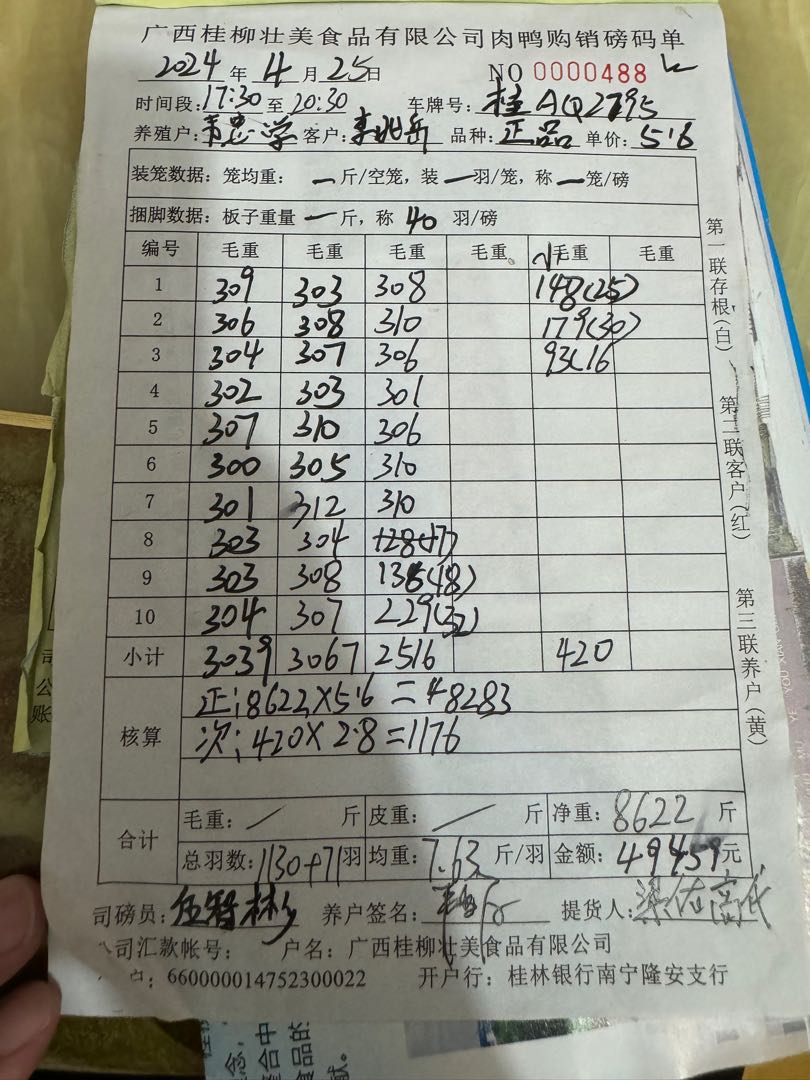 广西桂柳壮美食品有限公司肉鸭购销磅码单
2024 年 4 月 25 日 NO 0000488
时间段: 17:30 至 20:30 车牌号: 桂AQ2795
养殖户: 韦忠学 客户: 李兆岳 品种: 正品 单价: 5.6
装笼数据: 笼均重: 一 斤/空笼, 装 一 羽/笼, 称 一 笼/磅
捆脚数据: 板子重量 一 斤, 称 40 羽/磅
编号 毛重 毛重 毛重 毛重 毛重 毛重
1 309 303 308 148(25)
2 306 308 310 179(30)
3 304 307 306 93(16
4 302 303 301
5 307 310 306
6 300 305 310
7 301 312 310
8 303 304 128(17)
9 303 308 138(18)
10 304 307 229(32)
小计 3039 3067 2516 420
核算
正: 8622×5.6=48283
次: 420×2.8=1176
合计
毛重: / 斤 皮重: / 斤 净重: 8622 斤
总羽数: 1130+71 羽 均重: 7.63 斤/羽 金额: 49459 元
司磅员: 养户签名: 提货人:
公司汇款帐号: 户名: 广西桂柳壮美食品有限公司
户: 660000014752300022 开户行: 桂林银行南宁隆安支行
第一联存根(白)
第二联客户(红)
第三联养户(黄)
司
公
账
念,
合中
食品的
献。